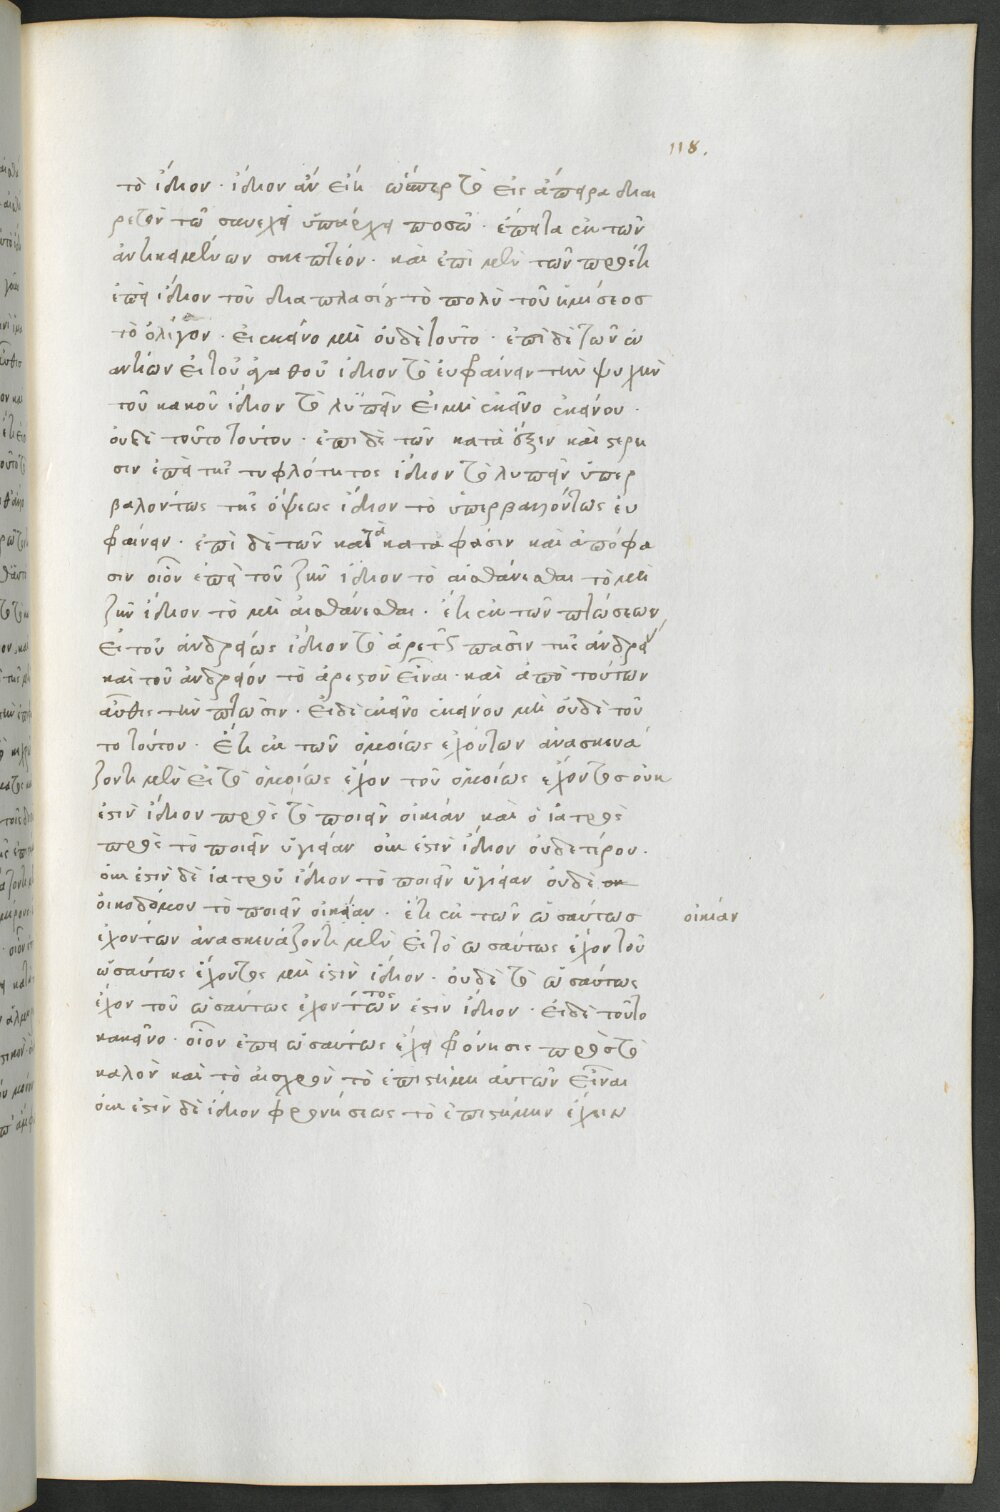 118.
τὸ ἴδιον· ἴδιον ἂν εἴη ὥσπερ τὸ εἰς ἄπειρα διαι
ρετὸν τῷ συνεχεῖ ὑπάρχει ποσῷ· ἔπειτα ἐκ τῶν
ἀντικειμένων σκεπτέον· καὶ ἐπὶ μὲν τῶν πρός τι
ἐπεὶ ἴδιον τοῦ διαπλασίου τὸ πολὺ τοῦ ἡμίσεος
τὸ ὀλίγον· εἰ ἐκεῖνο μὴ οὐδὲ τοῦτο· ἐπὶ δὲ τῶν ἐν
αντίων εἰ τοῦ ἀγαθοῦ ἴδιον τὸ εὐφραίνειν τὴν ψυχὴν
τοῦ κακοῦ ἴδιον τὸ λυπεῖν εἰ μὴ ἐκεῖνο ἐκείνου·
οὐδὲ τοῦτο τούτου· ἐπὶ δὲ τῶν κατὰ ἕξιν καὶ στέρη
σιν ἐπεὶ τῆς τυφλότητος ἴδιον τὸ λυπεῖν ὑπερ
βαλόντως τῆς ὄψεως ἴδιον τὸ ὑπερβαλλόντως εὐ
φραίνειν· ἐπὶ δὲ τῶν κατὰ κατάφασιν καὶ ἀπόφα
σιν οἷον ἐπεὶ τοῦ ζῆν ἴδιον τὸ αἰσθάνεσθαι τὸ μὴ
ζῆν ἴδιον τὸ μὴ αἰσθάνεσθαι· ἔτι ἐκ τῶν πτώσεων
εἰ τοῦ ἀνδρείως ἴδιον τὸ ἀρετῆς πᾶσιν τῆς ἀνδρεί
καὶ τοῦ ἀνδρεῖον τὸ ἄρεστον εἶναι· καὶ ἀπὸ τούτων
αὖθις τὴν πτῶσιν· εἰ δὲ ἐκεῖνο ἐκείνου μὴ οὐδὲ τοῦ
το τούτου· ἔτι ἐκ τῶν ὁμοίως ἐχόντων ἀνασκευά
ζοντι μὲν εἰ τὸ ὁμοίως ἔχον τοῦ ὁμοίως ἔχοντος οὐκ
ἐστὶν ἴδιον πρὸς τὸ ποιεῖν οἰκίαν καὶ ὁ ἰατρὸς
πρὸς τὸ ποιεῖν ὑγίειαν οὐκ ἐστὶν ἴδιον οὐδετέρου·
οὐκ ἐστὶν δὲ ἰατροῦ ἴδιον τὸ ποιεῖν ὑγίειαν οὐδὲ
οἰκοδόμου τὸ ποιεῖν οἰκείαν· ἔτι ἐκ τῶν ὡσαύτως
οἰκίαν
ἐχόντων ἀνασκευάζοντι μὲν εἰ τὸ ὡσαύτως ἔχον τοῦ
ὡσαύτως ἔχοντος μὴ ἐστὶν ἴδιον· οὐδὲ τὸ ὡσαύτως
ἔχον τοῦ ὡσαύτως ἔχοντος ἐστὶν ἴδιον· εἰ δὲ τοῦτο
κακεῖνο· οἷον ἐπεὶ ὡσαύτως ἔχει φρόνησις πρὸς τὸ
καλὸν καὶ τὸ αἰσχρὸν τὸ ἐπιστήμη αὐτῶν εἶναι
οὐκ ἐστὶν δὲ ἴδιον φρονήσεως τὸ ἐπιστήμην ἔχειν